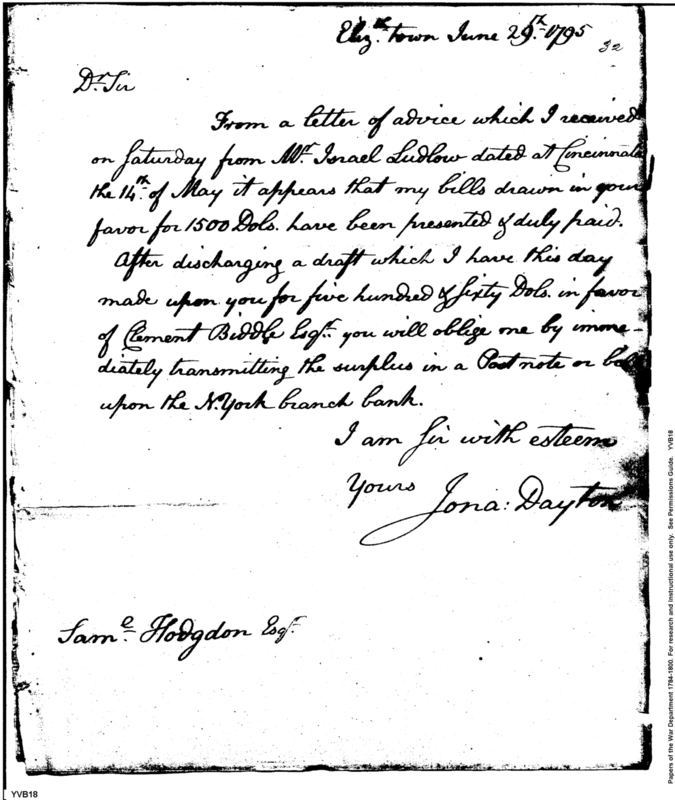 Eliz.th town June 29th. 1795
32
Dr. Sir
From a letter of advice which I received
on Saturday from Mr. Israel Ludlow dated at Cincinnati
the 14th. of May it appears that my bills drawn in your
favor for 1500 Dols. have been presented & duly paid.
After discharging a draft which I have this day
made upon you for five hundred & sixty Dols. in favor
of Clement Biddle Esqr. you will oblige me by imme-
diately transmitting the surplus in a Post note or
upon the N. York branch bank.
I am Sir with esteem
Yours
Jona: Dayton
Saml. Hodgdon Esqr.
YVB18
Papers of the War Department 1784-1800. For research and instructional use only. See Permissions Guide. YVB18